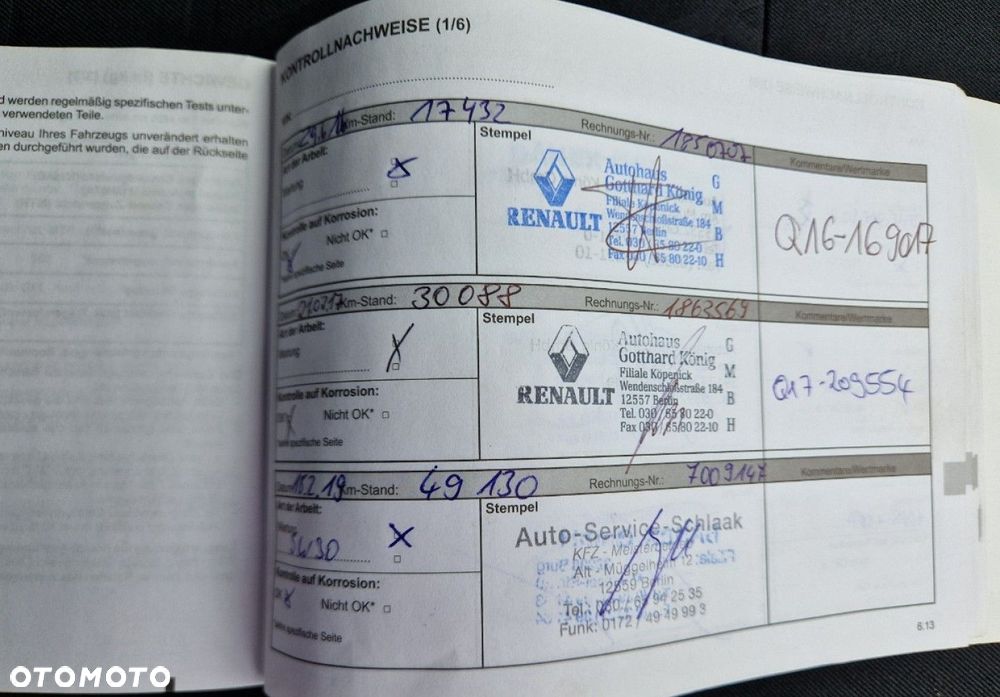 werden regelmäßig spezifischen Tests unter-
verwendeten Teile.
niveau Ihres Fahrzeugs unverändert erhalten
durchgeführt wurden, die auf der Rückseite
KONTROLLNACHWEISE (1/6)
29.6.16 Km-Stand: 17432
Rechnungs-Nr.: 1850707
Kommentare/Wertmarke
Art der Arbeit:
Wartung
Stempel
RENAULT
Autohaus G
Gotthard König
Filiale Köpenick M
Wendenschloßstraße 184
12557 Berlin B
Tel. 030 / 65 80 22-0
Fax 030 / 65 80 22-10 H
Q16-169017
Kontrolle auf Korrosion:
Nicht OK*
spezifische Seite
Km-Stand: 30088
Rechnungs-Nr.: 1863569
Kommentare/Wertmarke
Art der Arbeit:
Wartung
Stempel
RENAULT
Autohaus G
Gotthard König
Filiale Köpenick M
Wendenschloßstraße 184
12557 Berlin B
Tel. 030 / 65 80 22-0
Fax 030 / 65 80 22-10 H
Q17-209554
Kontrolle auf Korrosion:
Nicht OK*
spezifische Seite
Datum 18.2.19 Km-Stand: 49 130
Rechnungs-Nr.: 7009147
Kommentare/Wertmarke
Art der Arbeit:
Wartung
5W30
Stempel
Auto-Service-Schlaak
KFZ - Meisterbetrieb
Alt - Müggelheim 12
12559 Berlin
Tel.: 030 / 65 94 25 35
Funk: 0172 / 49 49 99 3
Kontrolle auf Korrosion:
OK Nicht OK*
spezifische Seite
6.13
OTOMOTO